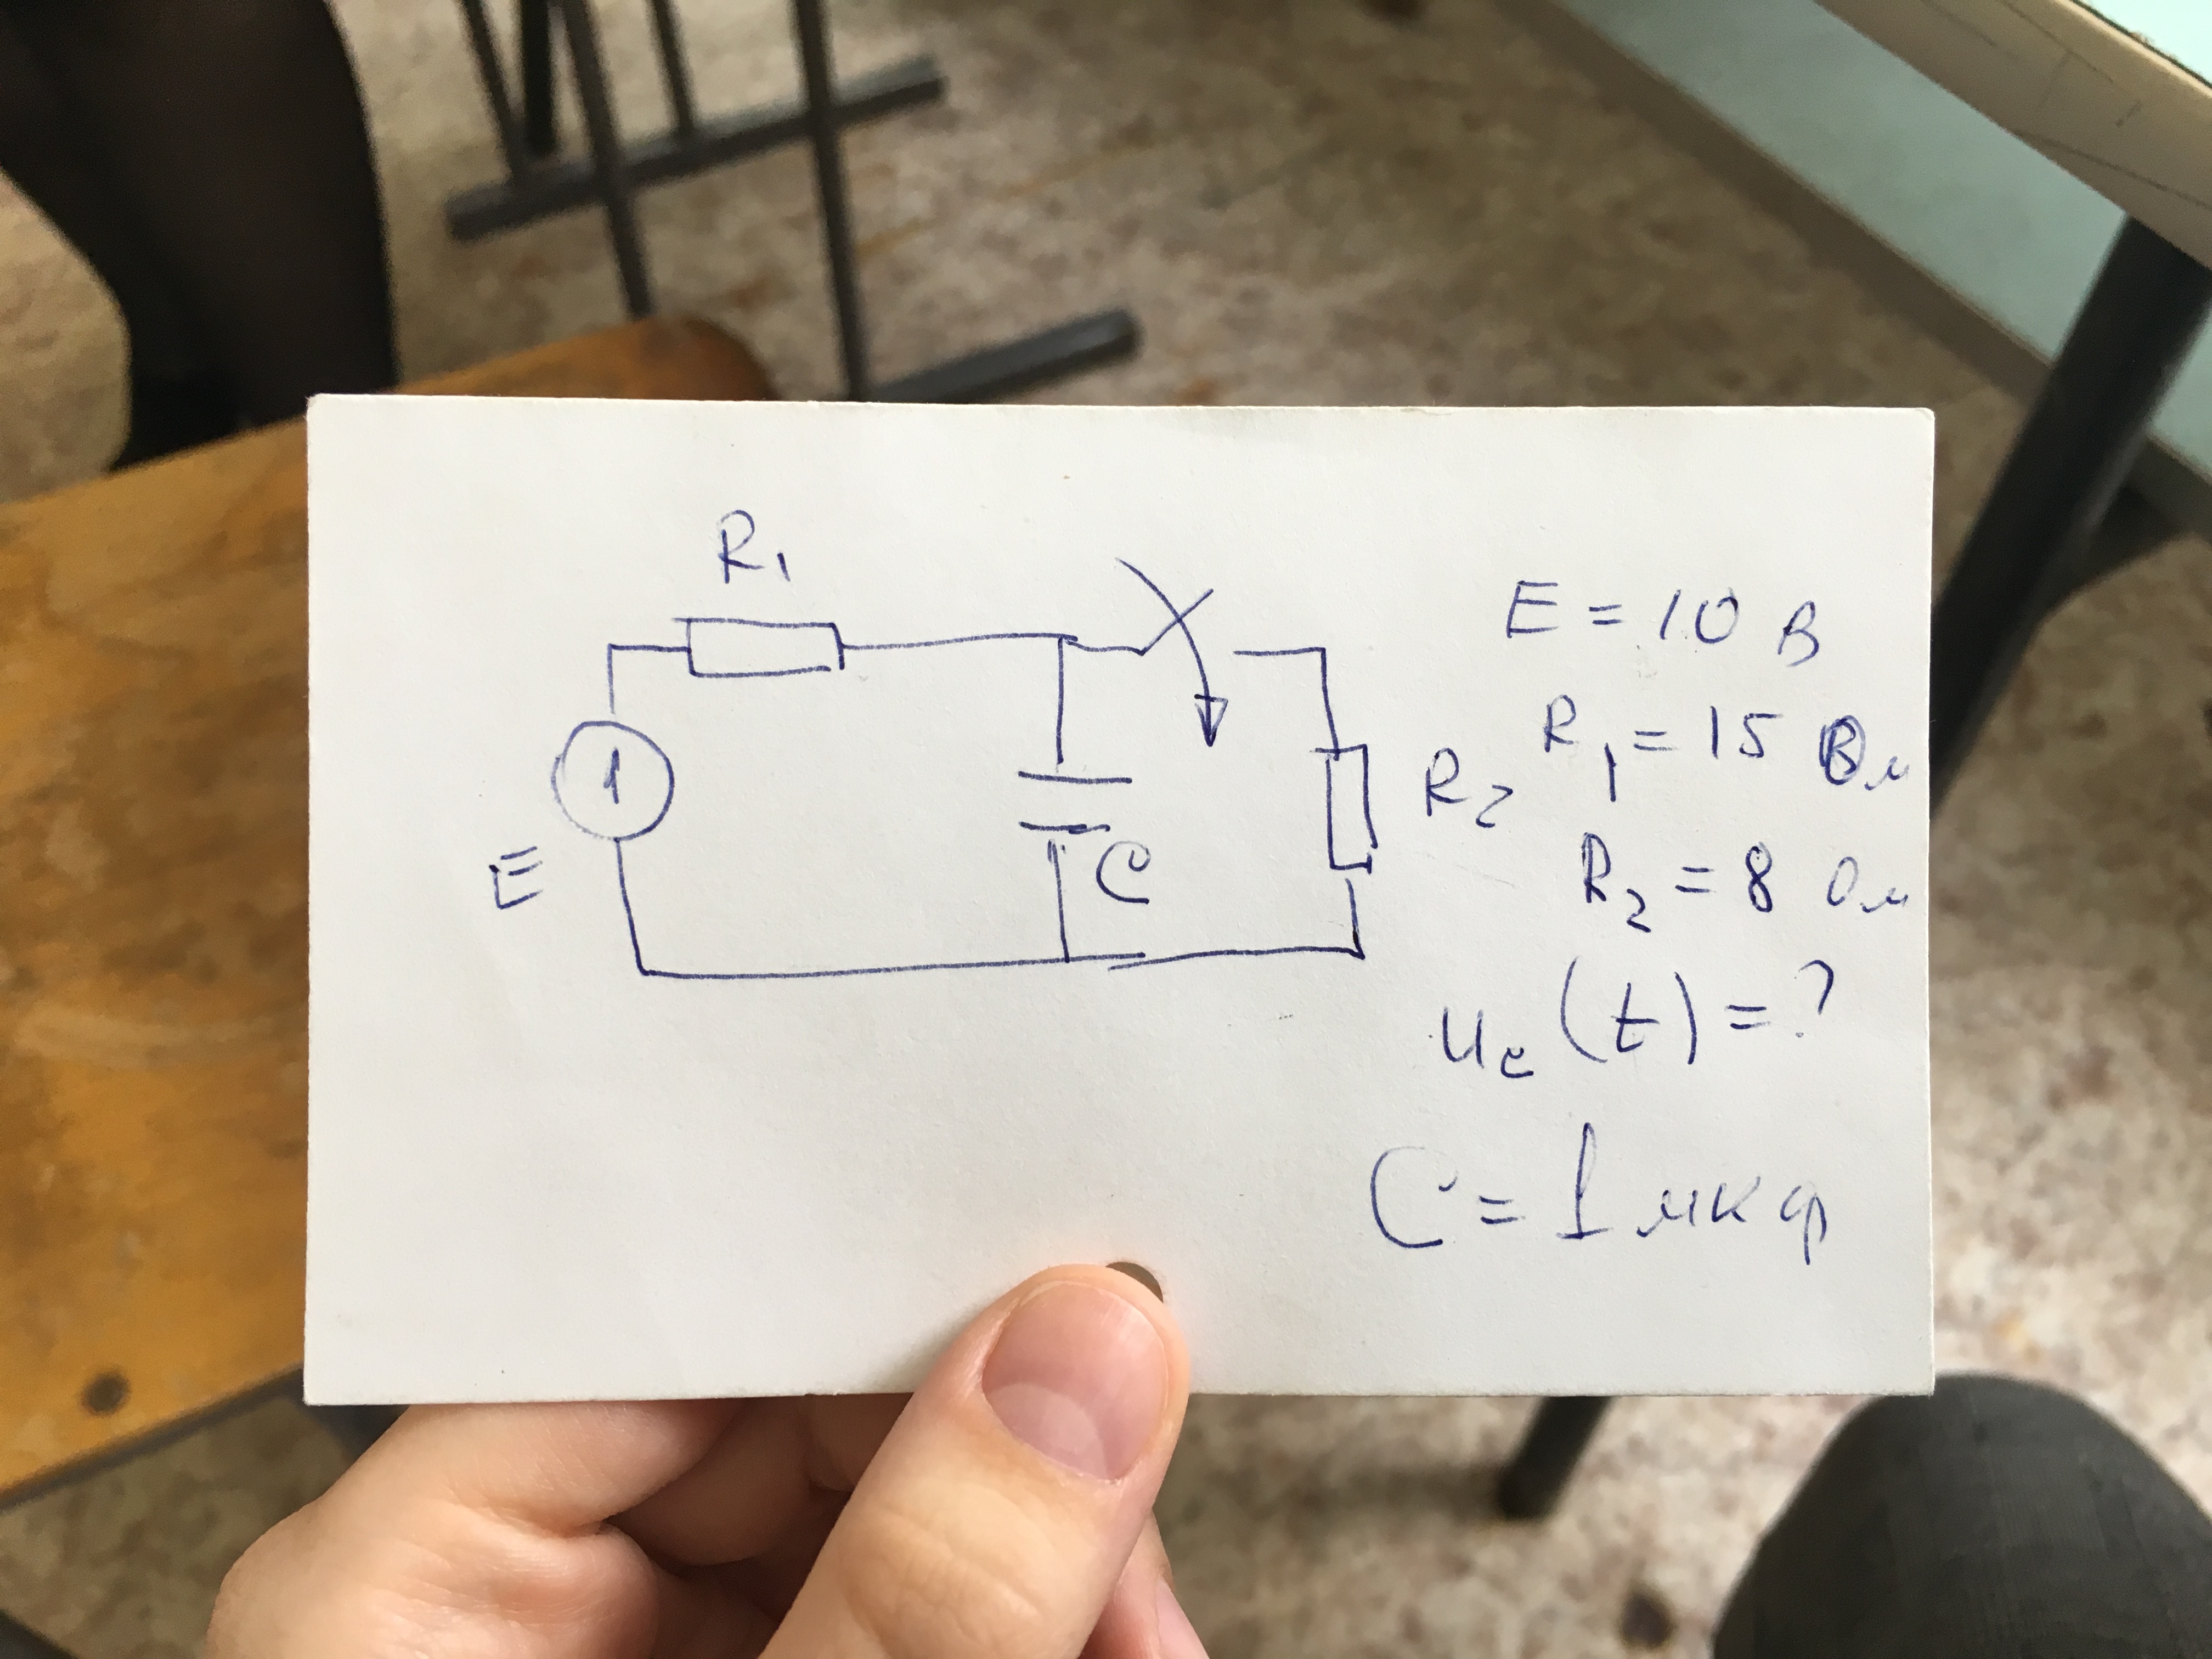 R₁
E
C
R₂
E = 10 В
R₁ = 15 Ом
R₂ = 8 Ом
u_c (t) = ?
C = 1 мкф